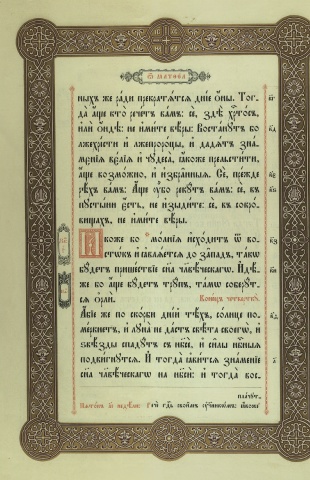 Ѿ МАТѲЕА
ныхъ же ради прекратѧтсѧ дніе ѻны. Тог-
да аще кто речетъ вамъ: се, здѣ хрⷭ҇тосъ,
или ѻндѣ: не имите вѣры. Востанꙋтъ бо
лжехрісти и лжепророцы, и дадѧтъ зна-
мєніѧ вєліѧ и чꙋдеса, ꙗкоже прельстити,
аще возможно, и избранныѧ. Се, прежде
рѣхъ вамъ. Аще ᲂубо рекꙋтъ вамъ: се, въ
пꙋстыни єсть, не изыдите: се, въ сокро-
вищахъ, не имите вѣры.
Ꙗкоже бо молніѧ исходитъ ѿ во-
стѡкъ и ꙗвлѧетсѧ до западъ, такѡ
бꙋдетъ пришествіе сн҃а чл҃вѣческагѡ. Идѣ-
же бо аще бꙋдетъ трꙋпъ, тамѡ соберꙋт-
сѧ ѻрли. Конецъ четверткꙋ.
Абіе же по скорби дній тѣхъ, солнце по-
меркнетъ, и лꙋна не дастъ свѣта своегѡ, и
ѕвѣзды спадꙋтъ съ нб҃сѐ, и силы нбⷭ҇ныѧ
подвигнꙋтсѧ. И тогда ꙗвитсѧ знаменіе
сн҃а чл҃вѣческагѡ на нб҃си: и тогда вос-
плачꙋт-